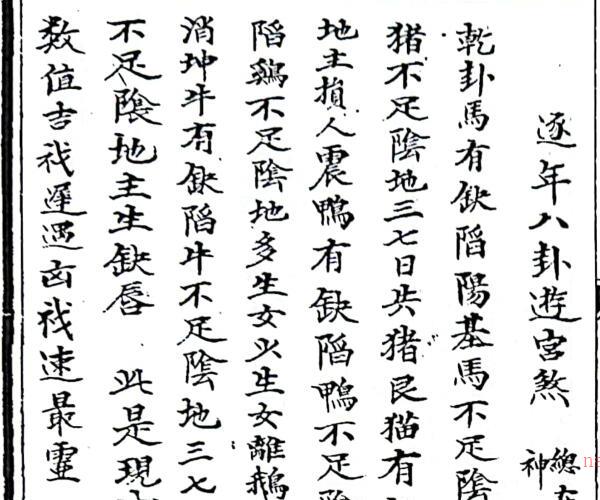 逐年八卦遊宮煞
總
神
乾卦馬有缺陷陽基馬不足陰
猪不足陰地三七日共猪艮猫有
地主損人震鴨有缺陷鴨不足
陷鷄不足陰地多生女少生女離鵝
消坤牛有缺陷牛不足陰地三七
不足陰地主生缺唇 此是現
数值吉我遲遇凶我速最靈